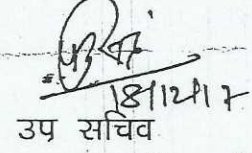 18/12/17
उप सचिव